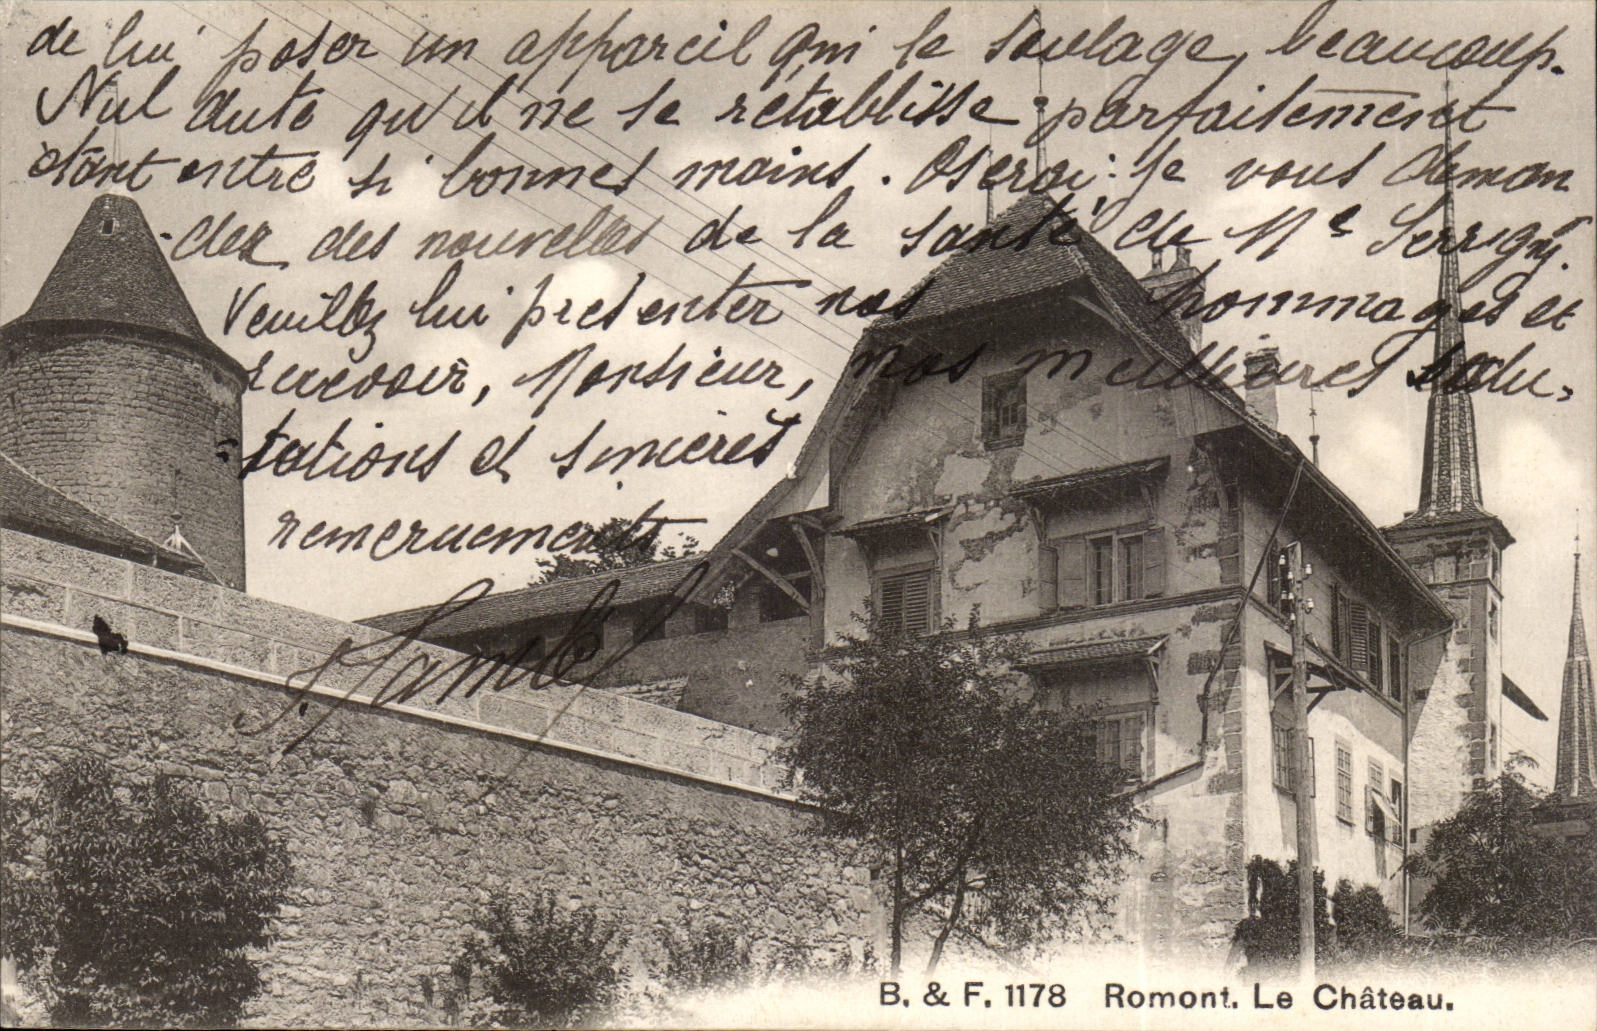 de lui poser un appareil qui le soulage beaucoup.
Nul doute qu'il ne se rétablisse parfaitement
étant entre si bonnes mains. Oserai-je vous deman
-der des nouvelles de la santé de Me Serrigny.
Veuillez lui présenter nos hommages et
recevoir, Monsieur, nos meilleures salu-
-tations et sincères
remerciements
B. & F. 1178 Romont. Le Château.